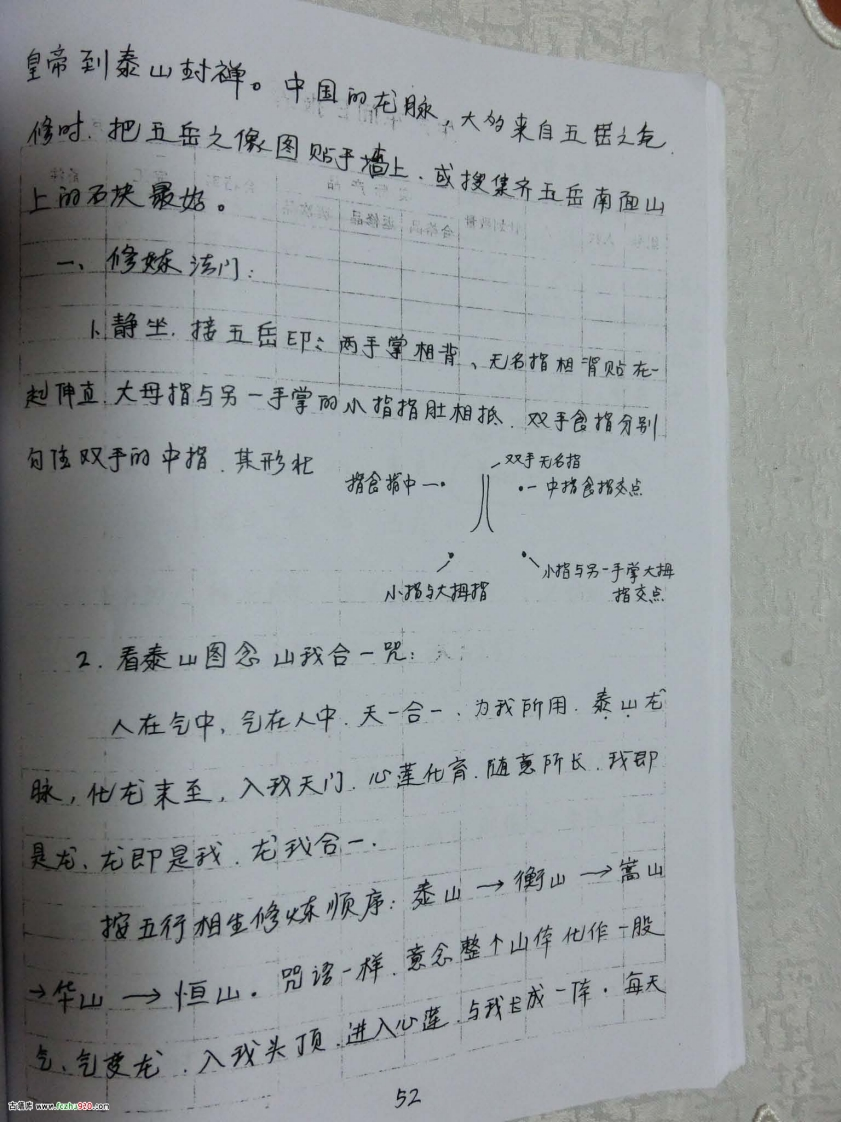 皇帝到泰山封禅。中国的龙脉,大多来自五岳之气.
修时.把五岳之像图贴于墙上.或搜集齐五岳南面山
上的石块最好。
一、修炼法门:
1.静坐.接五岳印:两手掌相背、无名指相背贴在一
起伸直.大母指与另一手掌的小指指肚相抵.双手食指分别
勾住双手的中指.其形状
双手无名指
指食指中一
一中指食指交点
小指与大拇指
小指与另一手掌大拇
指交点
2.看泰山图念山我合一咒:
人在气中,气在人中.天一合一.为我所用.泰山龙
脉,化龙来至,入我天门.心莲化育.随意所长.我即
是龙、龙即是我.龙我合一.
按五行相生修炼顺序:泰山→衡山→嵩山
→华山→恒山.咒语一样.意念整个山体化作一股
气、气变龙.入我头顶.进入心莲.与我长成一体.每天
52
古籍库 www.fozhu920.com